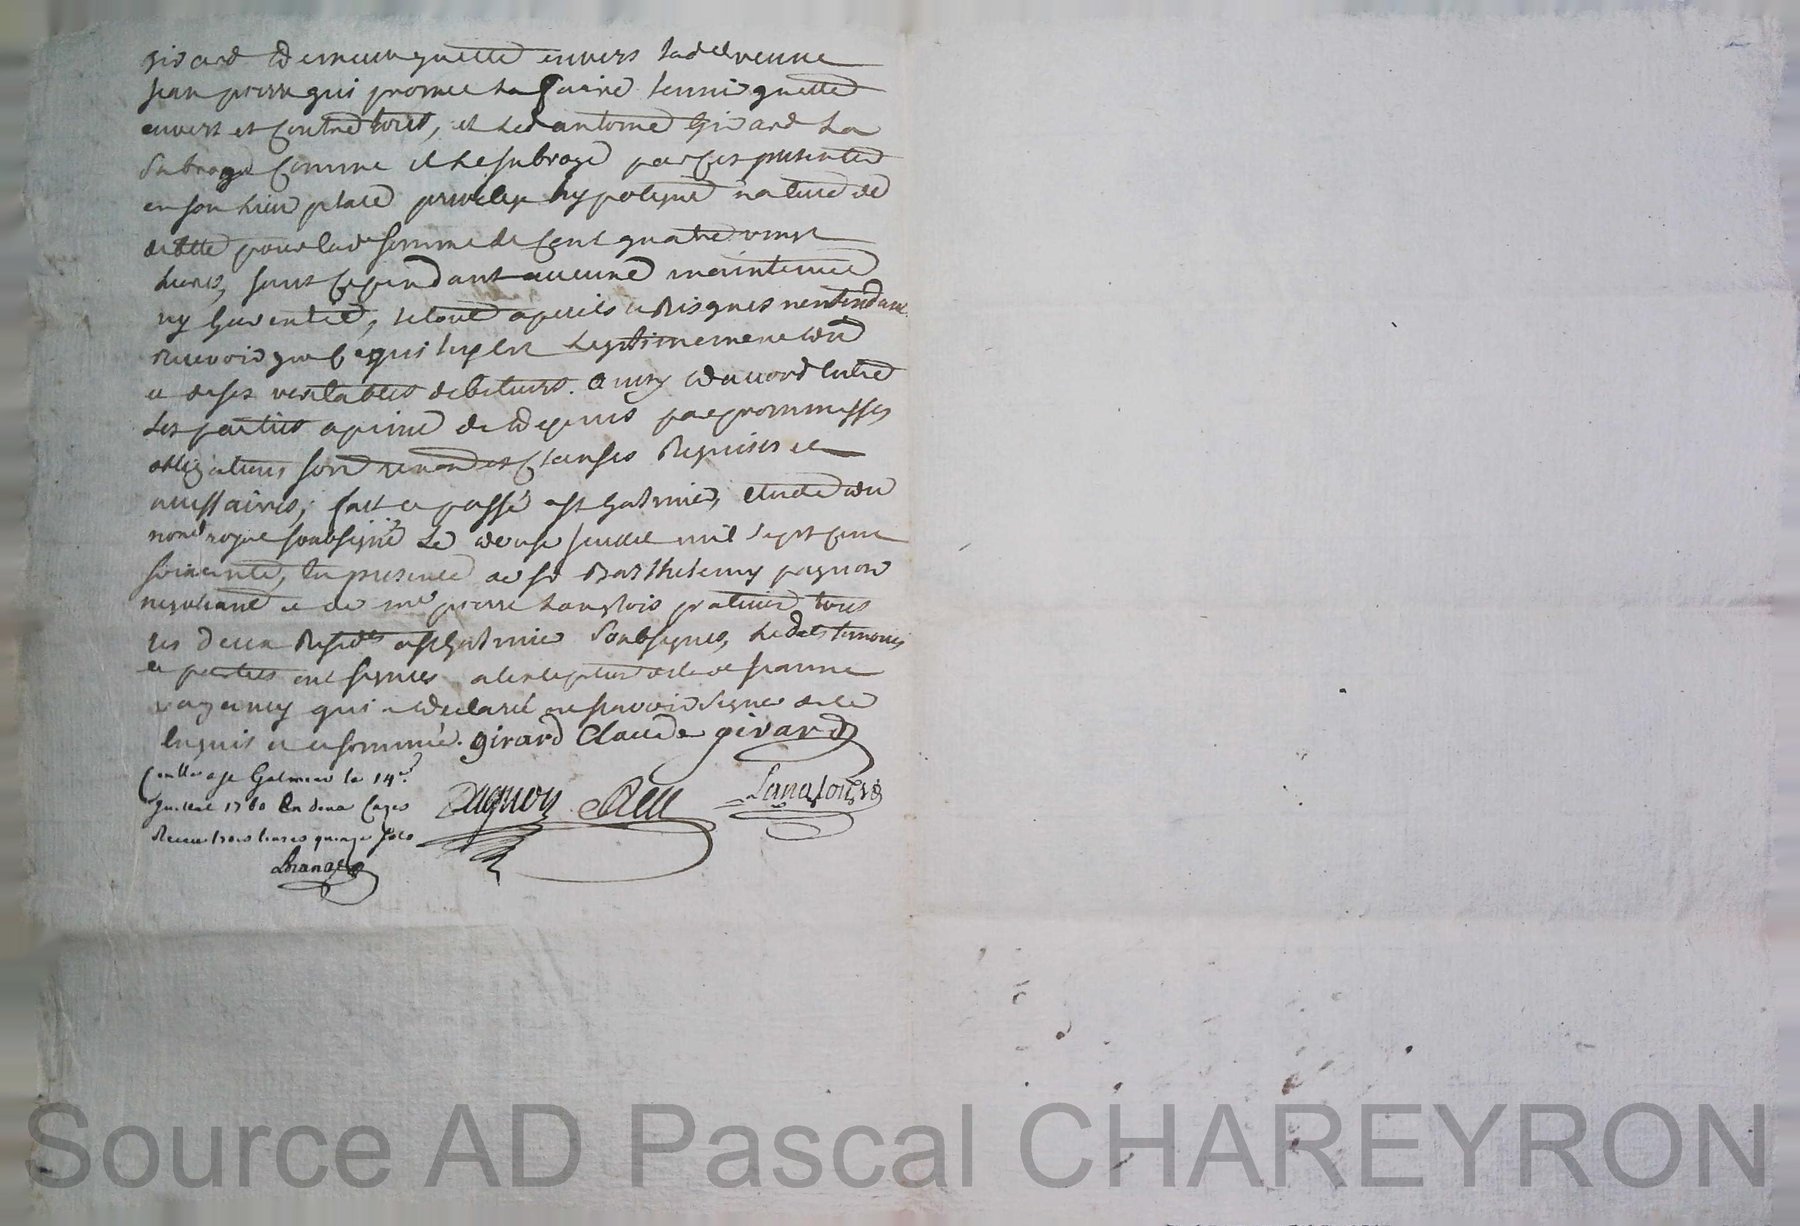 girard demeure quitte envers lad veuve
jean pierre qui promet la faire tenir quitte
envers et contre tous, et led antoine girard la
subroge comme il le subroge par ces presentes
en son lieu place privilege hypoteque nature de
dette pour lad somme de cent quatre vingt
livres, sans cependant aucune maintenue
ny garentie, le tout a perils et Risques n'entendant
recevoir que ce qui luy est legitimement du
et de ses veritables debiteurs. ainsy d'accord entre
les parties a peine de depens par promesses
obligations soumd renond et clauses Requises et
necessaires; fait et passé a st galmier, etude du
nore royal soubsigné Le douse juillet mil sept cent
soixante, En presence de sr Barthelemy pagnon
negotiant et de me pierre Langlois praticien tous
les deux Residts a st galmier soubsignes, lesdts temoins
et parties ont signes a l'exception de lad jeanne
qui a declaré ne scavoir signer de ce
enquis et sommée. girard Claude girard
Conllé a st Galmier le 14e
juillet 1760 En deux Cazes
Receu trois livres quinze sols
Pagnon Langlois
Source AD Pascal CHAREYRON